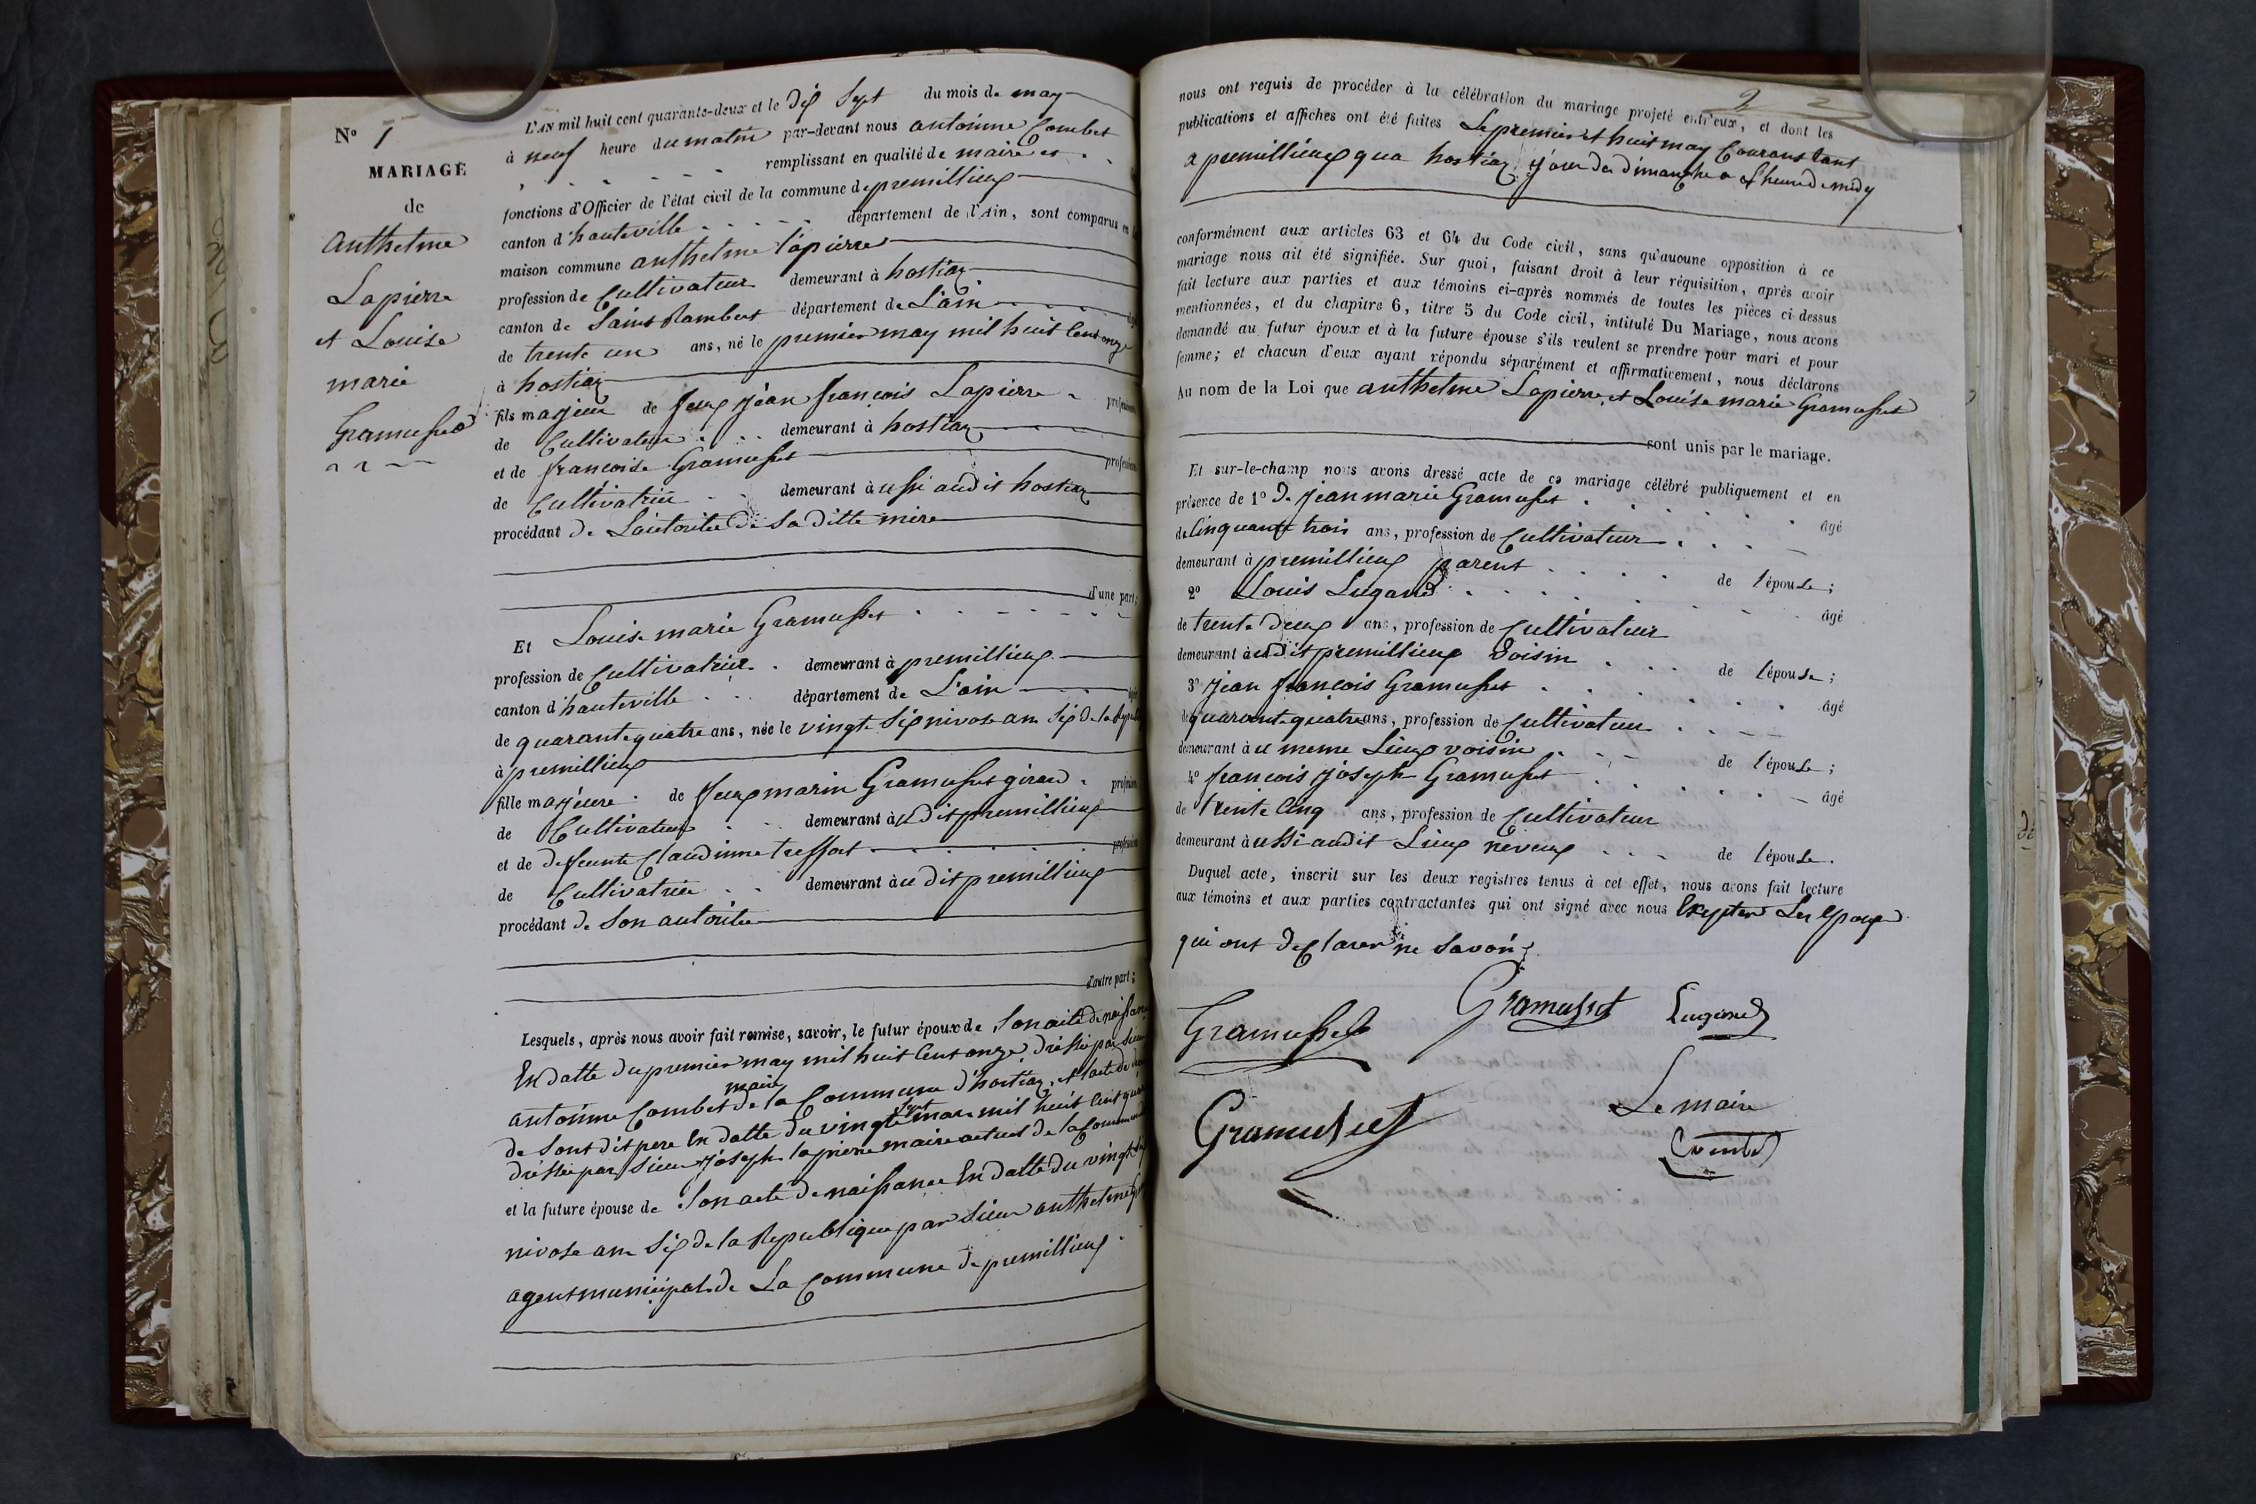 N° 1
MARIAGE
de
Anthelme
Lapierre
et Louise
marie
Gramusset
L'AN mil huit cent quarante-deux et le dix Sept du mois de may
à neuf heure du matin par-devant nous antoinne Combet
remplissant en qualité de maire et
fonctions d'Officier de l'état civil de la commune de premillieux
canton d'hauteville département de l'Ain, sont comparus en
maison commune anthelme lapierre
profession de Cultivateur demeurant à hostiaz
canton de Saint Rambert département de L'ain
de trente un ans, né le premier may mil huit Cent onze
à hostiaz
fils majeur de feux jéan françois Lapierre profession
de Cultivateur demeurant à hostiaz
et de françoise Gramusset profession
de Cultivatrice demeurant à ussi audit hostiaz
procédant de Lautorité de Sa ditte mère
d'une part;
Et Louise marie Gramusset
profession de Cultivatrice demeurant à premillieux
canton d'hauteville département de L'ain
de quarante quatre ans, née le vingt Six nivose an Six de la
à premillieux
fille majeure de feux marin Gramusset girau profession
de Cultivateur demeurant à u dit premillieux
et de defeunte Claudinne treffort profession
de Cultivatrice demeurant à u dit premillieux
procédant de Son autorité
d'autre part;
Lesquels, après nous avoir fait remise, savoir, le futur époux de Son acte de naissance
En datte du premier may mil huit Cent onze dréssé par Sieur
antoinne Combet maire de la Commune d'hostiaz, et l'acte de
de Sont dit pere En datte du vingt Sept mars mil huit Cent
dréssé par Sieur joseph lapierre maire actuel de la Commune
et la future épouse de Son acte de naissance En datte du vingt Six
nivose an Six de la Republique par Sieur anthelme
agent municipal de La Commune de premillieux.
nous ont requis de procéder à la célébration du mariage projeté entr'eux, et dont les
publications et affiches ont été faites Le premier et huit may Courant tant
a premillieux qua hostiaz jour de dimanche a l'heure de midy
conformément aux articles 63 et 64 du Code civil, sans qu'aucune opposition à ce
mariage nous ait été signifiée. Sur quoi, faisant droit à leur réquisition, après avoir
fait lecture aux parties et aux témoins ci-après nommés de toutes les pièces ci-dessus
mentionnées, et du chapitre 6, titre 5 du Code civil, intitulé Du Mariage, nous avons
demandé au futur époux et à la future épouse s'ils veulent se prendre pour mari et pour
femme; et chacun d'eux ayant répondu séparément et affirmativement, nous déclarons
Au nom de la Loi que anthelme Lapierre, et Louise marie Gramusset
sont unis par le mariage.
Et sur-le-champ nous avons dressé acte de ce mariage célébré publiquement et en
présence de 1° De jean marie Gramusset âgé
de Cinquante trois ans, profession de Cultivateur
demeurant à premillieux parent de l'épouse;
2° Louis Lugand âgé
de trente deux ans, profession de Cultivateur
demeurant à u dit premillieux voisin de l'épouse;
3° jean françois Gramusset âgé
de quarante quatre ans, profession de Cultivateur
demeurant à u meme Lieux voisin de l'épouse;
4° françois joseph Gramusset âgé
de trente Cinq ans, profession de Cultivateur
demeurant à ussi audit Lieux neveux de l'épouse.
Duquel acte, inscrit sur les deux registres tenus à cet effet, nous avons fait lecture
aux témoins et aux parties contractantes qui ont signé avec nous Exepter Les Epoux
qui ont declarer ne Savoir
Gramusset Gramusset Lugand
Le maire
Gramusset Combet